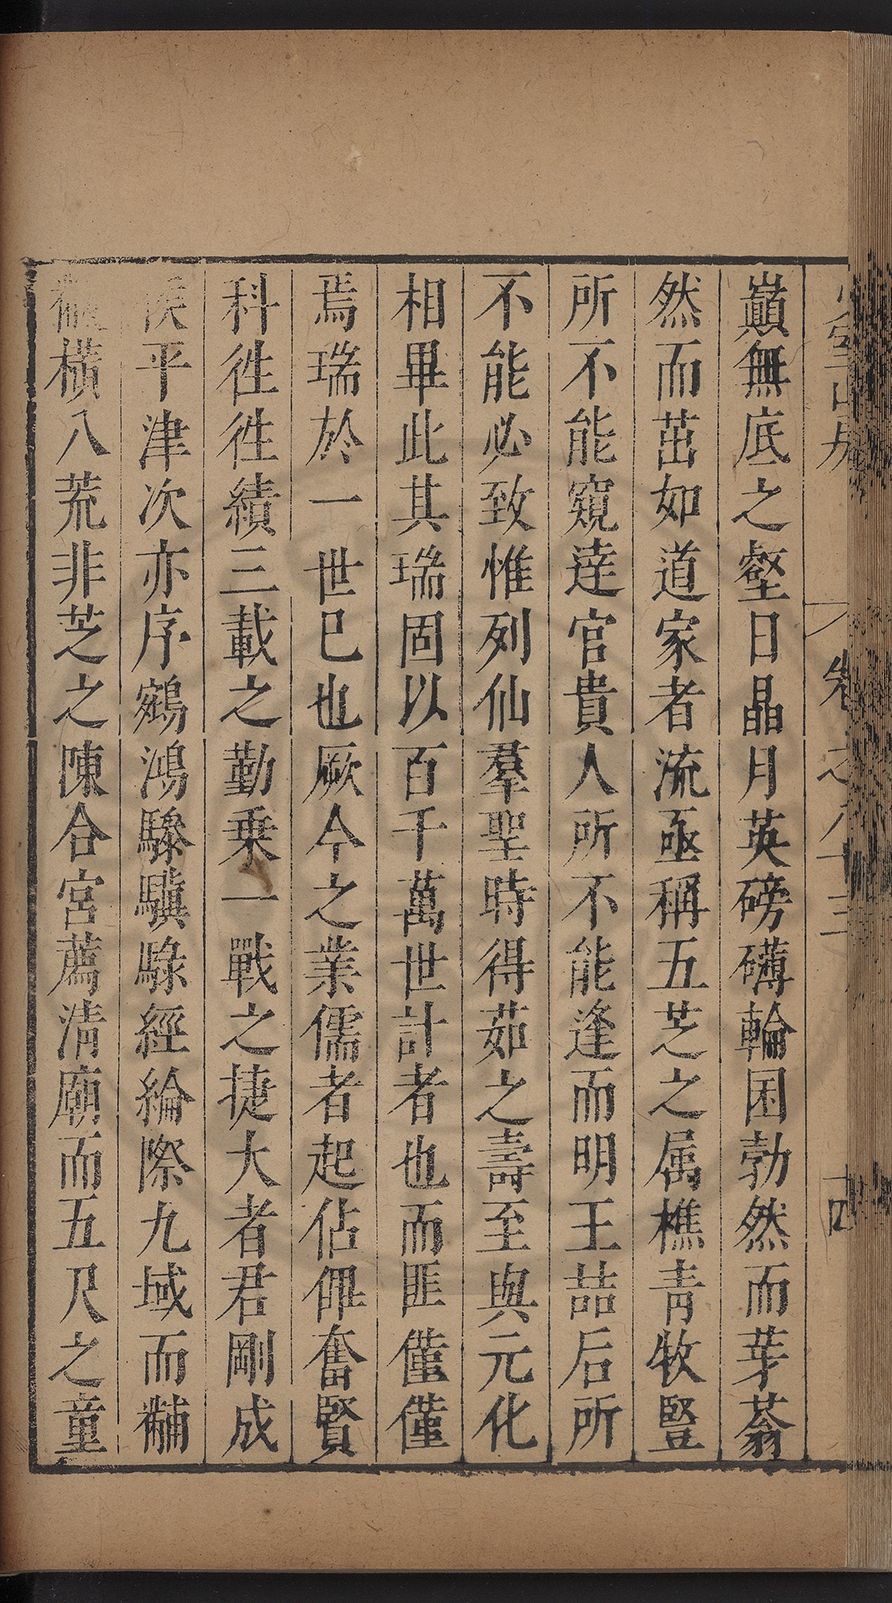 巔無底之壑日晶月英磅礴輪囷勃然而芽蓊
然而茁如道家者流亟稱五芝之属樵青牧豎
所不能窺達官貴人所不能逢而明王喆后所
不能必致惟列仙羣聖時得茹之壽至與元化
相畢此其瑞固以百千萬世計者也而匪僅僅
焉瑞於一世已也厥今之業儒者起佔俾奮賢
科徃徃績三載之勤乗一戰之捷大者君剛成
侯平津次亦序鵷鴻驂驥騄經綸際九域而黼
黻橫八荒非芝之陳合宮薦清廟而五尺之童
山房
卷之八十三
四